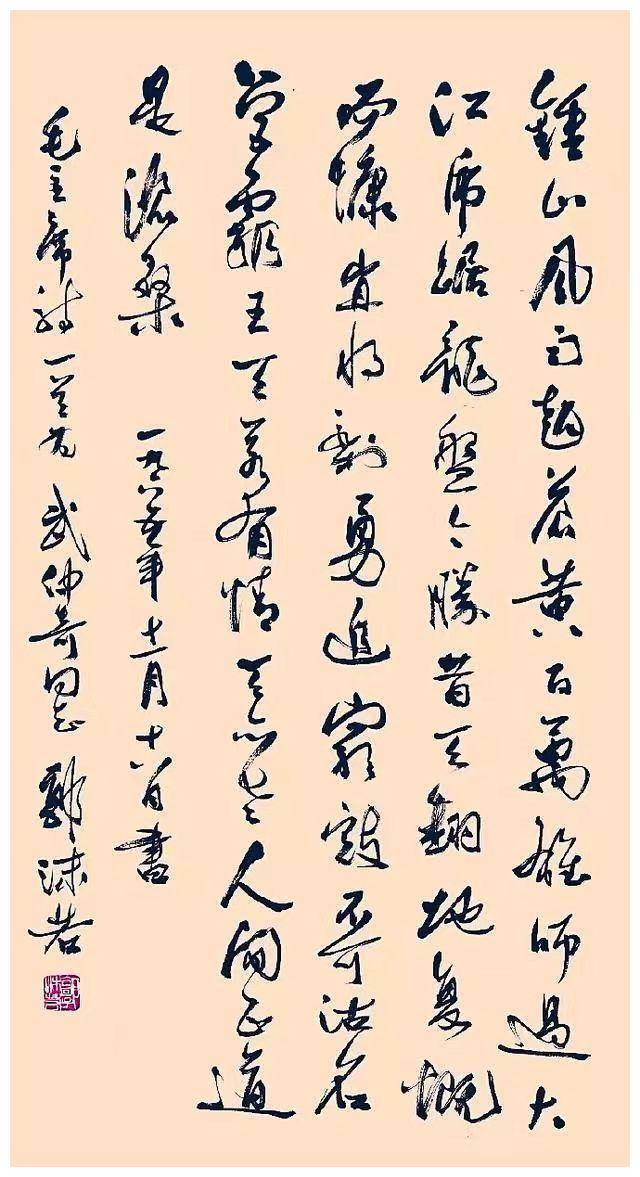 鍾山風雨起蒼黄百萬雄師過大
江虎踞龍盤今勝昔天翻地复慨
而慷宜将剩勇追窮寇不可沽名
學霸王天若有情天亦老人间正道
是滄桑 一九六五年 月十 日書
毛主席詩一首为 武仲奇同志 郭沫若